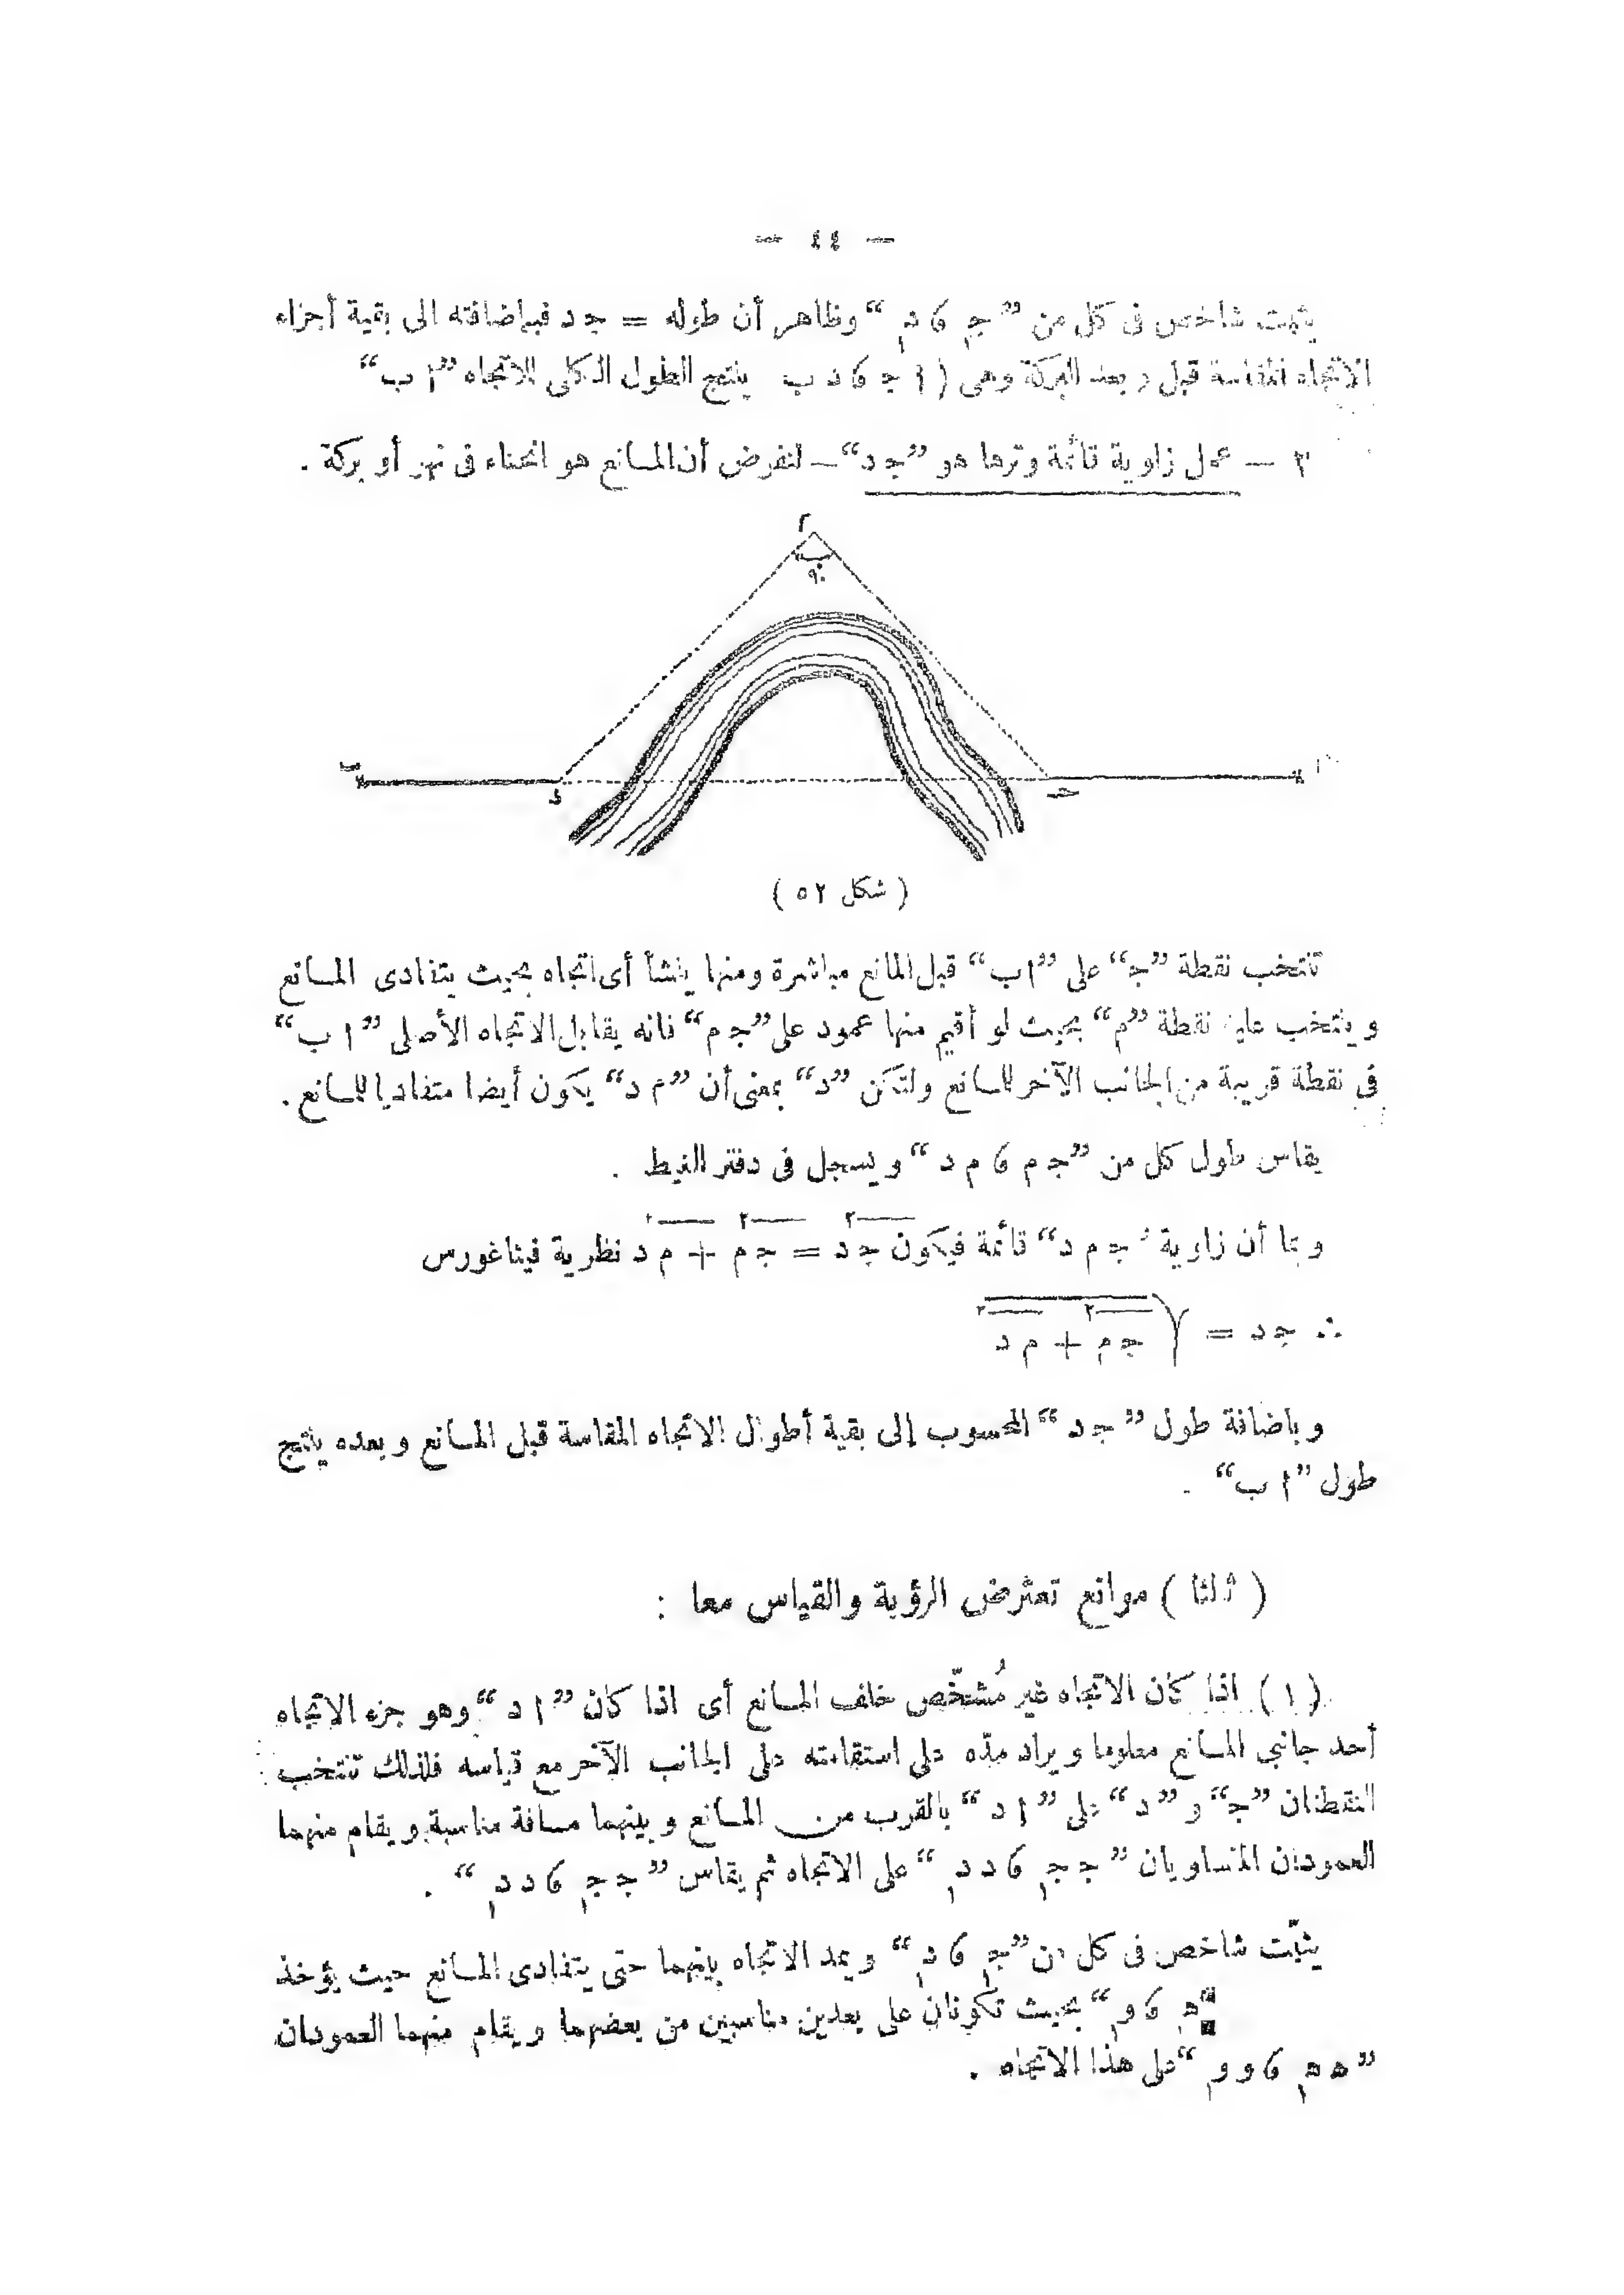 — ٤٤ —
يثبت شاخص فى كل من ”جـ١ ، د١“ وظاهر أن طوله = جـ د فبإضافته الى بقية أجزاء
الاتجاه المقاسة قبل وبعد البركة وهى ( ا جـ ، د ب ينتج الطول الكلى للاتجاه ”ا ب“
٣ — عمل زاوية قائمة وترها هو ”جـ د“ — لنفرض أن المانع هو انحناء فى نهر أو بركة .
م
٩٠
ب
د
جـ
ا
( شكل ٥٢ )
تنتخب نقطة ”جـ“ على ”اب“ قبل المانع مباشرة ومنها ينشأ أى اتجاه بحيث يتفادى المانع
وينتخب عليه نقطة ”م“ بحيث لو أقيم منها عمود على ”جـ م“ فانه يقابل الاتجاه الأصلى ”ا ب“
فى نقطة قريبة من الجانب الآخر للمانع ولتكن ”د“ بمعنى أن ”م د“ يكون أيضا متفاديا للمانع .
يقاس طول كل من ”جـ م ، م د“ ويسجل فى دفتر الغيط .
وبما أن زاوية ”جـ م د“ قائمة فيكون جـ د٢ = جـ م٢ + م د٢ نظرية فيثاغورس
∴ جـ د = √ جـ م٢ + م د٢
وباضافة طول ”جـ د“ المحسوب إلى بقية أطوال الاتجاه المقاسة قبل المانع وبعده ينتج
طول ”ا ب“ .
( ثالثا ) موانع تعترض الرؤية والقياس معا :
( ١ ) اذا كان الاتجاه غير مُشخّص خلف المانع أى اذا كان ”ا د“ وهو جزء الاتجاه
أحد جانبي المانع معلوما ويراد مدّه على استقامته على الجانب الآخر مع قياسه فلذلك تنتخب
النقطتان ”جـ“ و ”د“ على ”ا د“ بالقرب من المانع وبينهما مسافة مناسبة ويقام منهما
العمودان المتساويان ”جـ جـ١ ، د د١“ على الاتجاه ثم يقاس ”جـ جـ١ ، د د١“ .
يثبّت شاخص فى كل من ”جـ١ ، د١“ ويمد الاتجاه بينهما حتى يتفادى المانع حيث يؤخذ
”هـ١ ، و١“ بحيث تكونان على بعدين مناسبين من بعضهما ويقام منهما العمودان
”هـ هـ١ ، و و١“ على هذا الاتجاه .